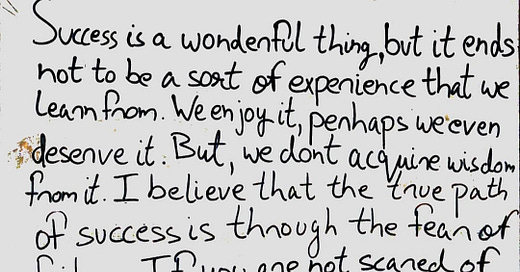 Success is a wonderful thing, but it ends
not to be a sort of experience that we
learn from. We enjoy it, perhaps we even
deserve it. But, we dont acquire wisdom
from it. I believe that the true path
of success is through the fear of
If you are not scared of